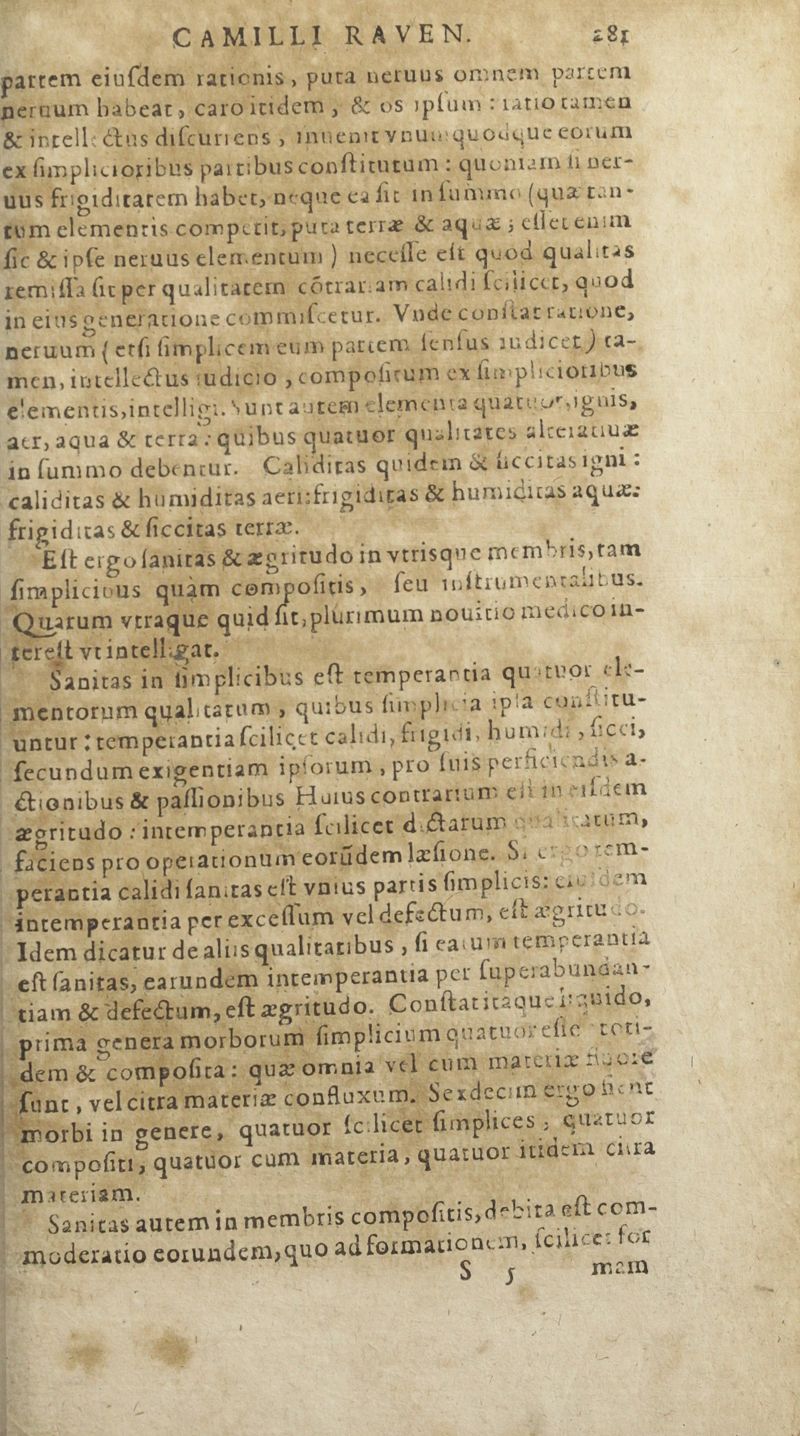 CAMILLI RAVEN. 281
partem eiuſdem rationis, puta neruus omnem partem
neruum habeat, caro itidem, & os ipſum : ratio tamen
& intellectus diſcuriens, inuenit vnumquodque eorum
ex ſimplicioribus partibus conſtitutum : quoniam ſi ner-
uus frigiditatem habet, neque ea ſit in ſummo (quæ tan-
tum elementis competit, puta terræ & aquæ ; eſſet enim
ſic & ipſe neruus elementum ) neceſſe eſt quod qualitas
remiſſa ſit per qualitatem cōtrariam calidi ſcilicet, quod
in eius generatione commiſcetur. Vnde conſtat ratione,
neruum ( etſi ſimplicem eum partem ſenſus iudicet) ta-
men, intellectus iudicio , compoſitum ex ſimplicioribus
elementis, intelligi. Sunt autem elementa quatuor, ignis,
aer, aqua & terra : quibus quatuor qualitates alteratiuæ
in ſummo debentur. Caliditas quidem & ſiccitas igni :
caliditas & humiditas aeri: frigiditas & humiditas aquæ:
frigiditas & ſiccitas terræ.
Eſt ergo ſanitas & ægritudo in vtrisque membris, tam
ſimplicibus quàm compoſitis, ſeu inſtrumentalibus.
Quarum vtraque quid ſit, plurimum nouitio medico in-
tereſt vt intelligat.
Sanitas in ſimplicibus eſt temperantia quatuor ele-
mentorum qualitatum , quibus ſimplicia ipſa conſtitu-
untur : temperantia ſcilicet calidi, frigidi, humidi , ſicci,
ſecundum exigentiam ipſorum , pro ſuis perficiendis a-
ctionibus & paſſionibus Huius contrarium eſt in eiſdem
ægritudo : intemperantia ſcilicet dictarum qualitatum,
faciens pro operationum eorūdem læſione. Si ergo tem-
perantia calidi ſanitas eſt vnius partis ſimplicis: eiusdem
intemperantia per exceſſum vel defectum, eſt ægritudo.
Idem dicatur de aliis qualitatibus , ſi earum temperantia
eſt ſanitas, earundem intemperantia per ſuperabundan-
tiam & defectum, eſt ægritudo. Conſtat itaque liquido,
prima genera morborum ſimplicium quatuor eſſe toti-
dem & compoſita : quæ omnia vel cum materiæ
ſunt , vel citra materiæ confluxum. Sexdecim ergo ſunt
morbi in genere, quatuor ſcilicet ſimplices , quatuor
compoſiti, quatuor cum materia, quatuor itidem citra
materiam.
Sanitas autem in membris compoſitis, debita eſt com-
moderatio eorundem, quo ad formationem, ſcilicet for
S 5 mam